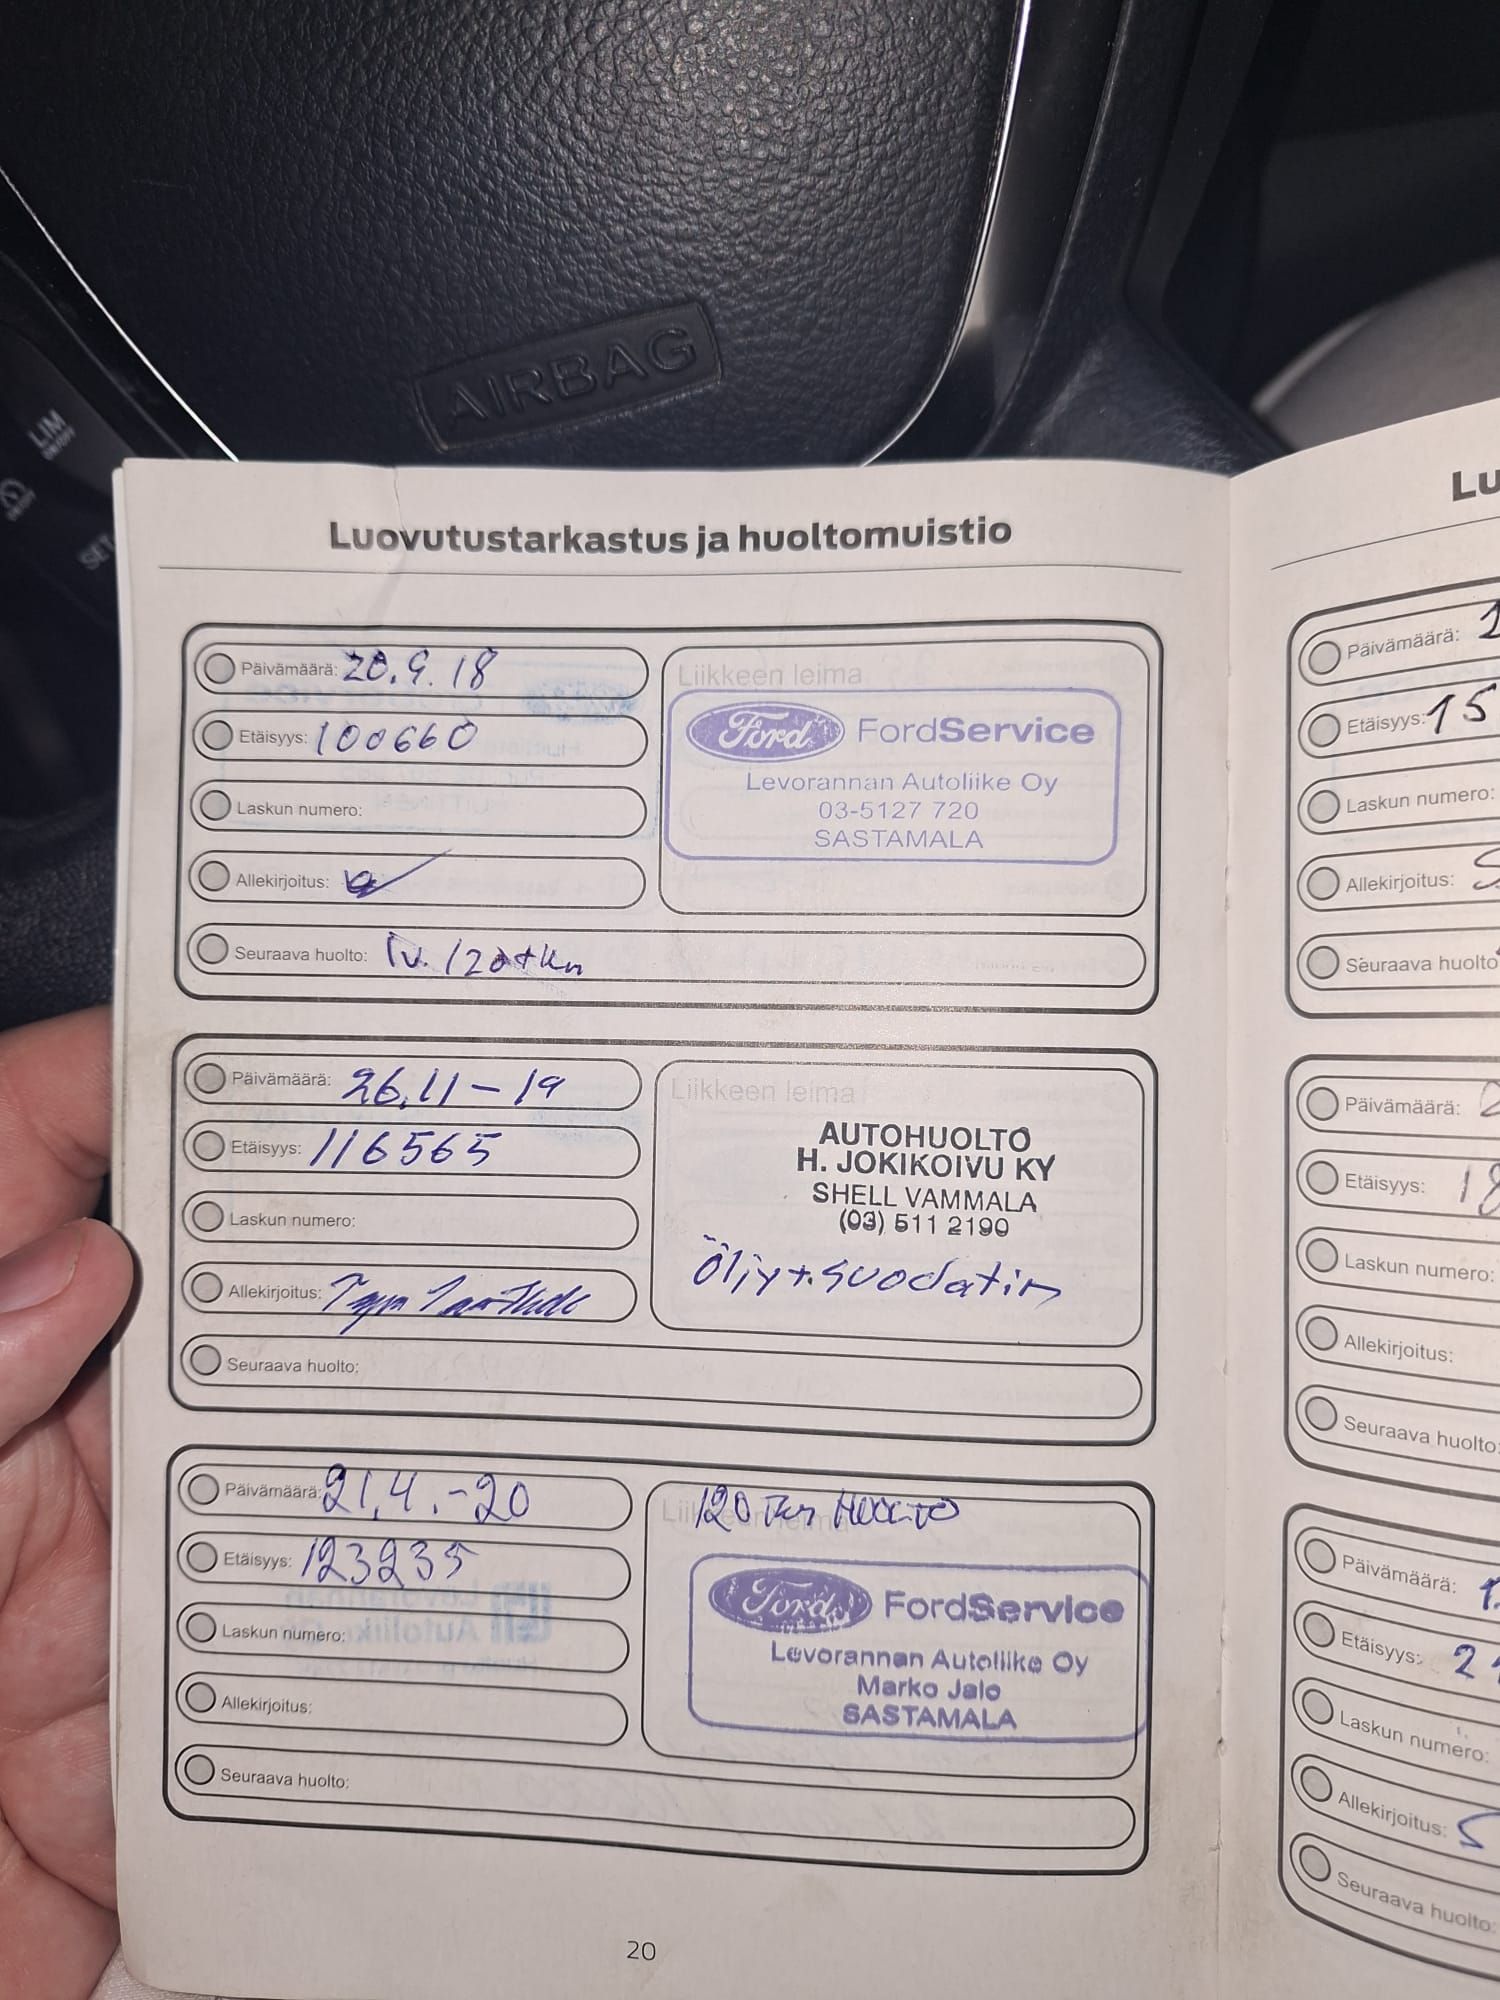 AIRBAG
LIM
SET
Luovutustarkastus ja huoltomuistio
Päivämäärä: 20.9.18
Etäisyys: 100660
Laskun numero:
Allekirjoitus:
Seuraava huolto: 1v. 120tkm
Liikkeen leima
Ford FordService
Levorannan Autoliike Oy
03-5127 720
SASTAMALA
Päivämäärä: 26.11-19
Etäisyys: 116565
Laskun numero:
Allekirjoitus:
Seuraava huolto:
Liikkeen leima
AUTOHUOLTO
H. JOKIKOIVU KY
SHELL VAMMALA
(03) 511 2190
Öljy+suodatin
Päivämäärä: 21.4.-20
Etäisyys: 123235
Laskun numero:
Allekirjoitus:
Seuraava huolto:
Liikkeen leima
120 Tkm HUOLTO
Ford FordService
Levorannan Autoliike Oy
Marko Jalo
SASTAMALA
20
Lu
Päivämäärä:
Etäisyys: 15
Laskun numero:
Allekirjoitus:
Seuraava huolto
Päivämäärä:
Etäisyys: 18
Laskun numero:
Allekirjoitus:
Seuraava huolto:
Päivämäärä:
Etäisyys: 2
Laskun numero:
Allekirjoitus:
Seuraava huolto: